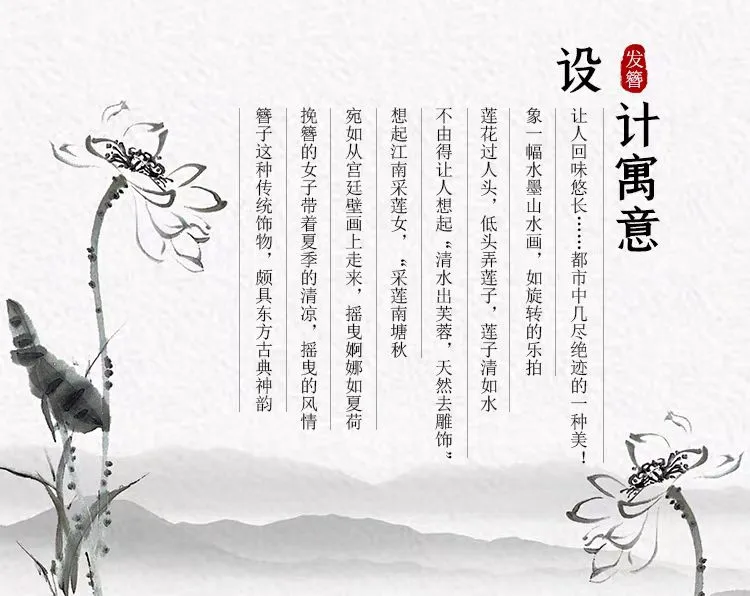 发簪
设计寓意
簪子这种传统饰物，颇具东方古典神韵
挽簪的女子带着夏季的清凉，摇曳的风情
宛如从宫廷壁画上走来，摇曳婀娜如夏荷
想起江南采莲女，“采莲南塘秋
不由得让人想起“清水出芙蓉，天然去雕饰”
莲花过人头，低头弄莲子，莲子清如水
象一幅水墨山水画，如旋转的乐拍
让人回味悠长……都市中几尽绝迹的一种美！